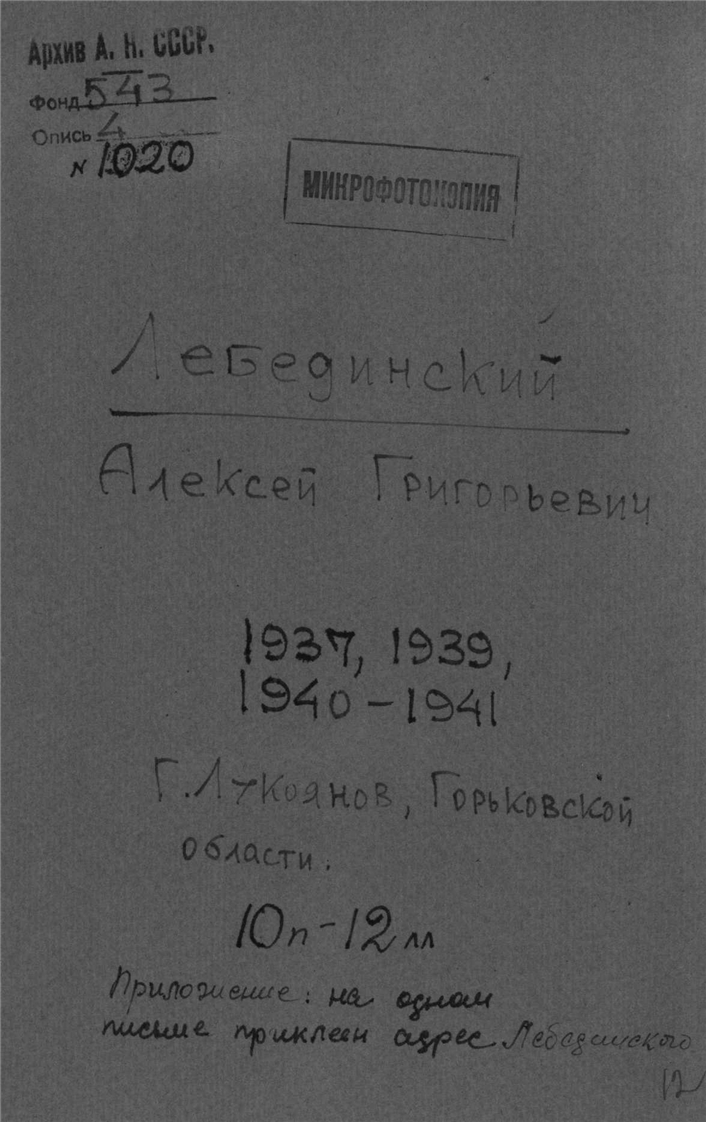 Архив А. Н. СССР.
Фонд 543
Опись 4
N 1020
МИКРОФОТОКОПИЯ
Лебединский
Алексей Григорьевич
1937, 1939,
1940-1941
Г. Лукоянов, Горьковской
области.
10п-12лл
Приложение: на одном
письме приклеен адрес Лебединского
12